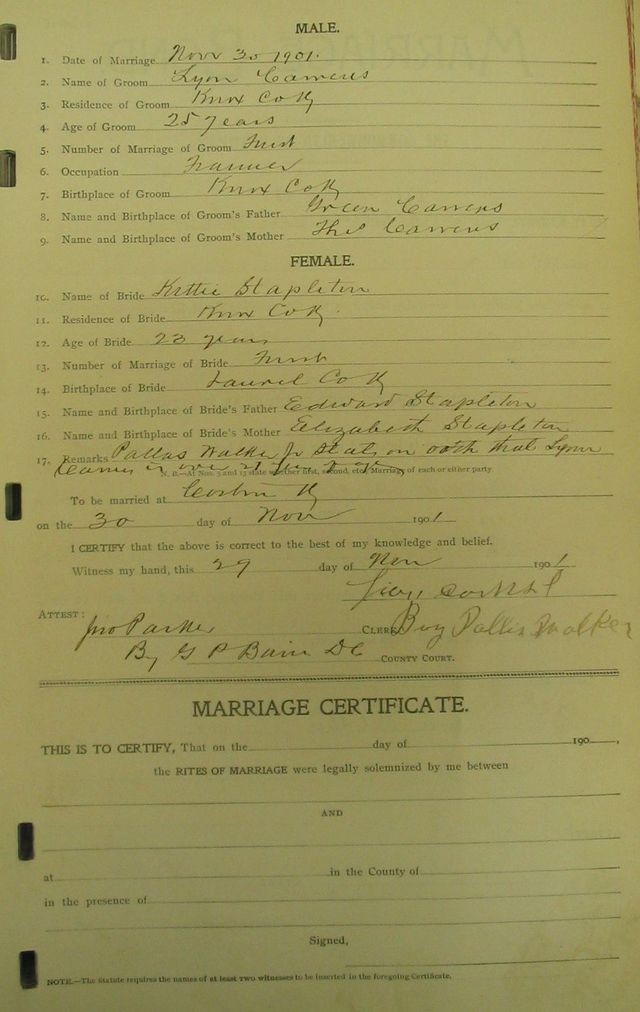 MALE.
1. Date of Marriage Nov 30 1901.
2. Name of Groom Lyon
3. Residence of Groom Knox Co Ky
4. Age of Groom 25 years
5. Number of Marriage of Groom First
6. Occupation Farmer
7. Birthplace of Groom Knox Co Ky
8. Name and Birthplace of Groom's Father Green
9. Name and Birthplace of Groom's Mother
FEMALE.
10. Name of Bride Kittie Stapleton
11. Residence of Bride Knox Co Ky.
12. Age of Bride 23 years
13. Number of Marriage of Bride First
14. Birthplace of Bride Laurel Co Ky
15. Name and Birthplace of Bride's Father Edward Stapleton
16. Name and Birthplace of Bride's Mother Elizabeth Stapleton
17. Remarks Pallas Walker Jr Stats on oath that Lyon
is over 21 years of age
N. B.—At Nos. 5 and 13 state whether first, second, etc., Marriage of each or either party
To be married at Corbin Ky
on the 30 day of Nov 1901
I CERTIFY that the above is correct to the best of my knowledge and belief.
Witness my hand, this 29 day of Nov 1901
ATTEST:
Jno Parker CLERK Walker
By G P Bain DC COUNTY COURT.
MARRIAGE CERTIFICATE.
THIS IS TO CERTIFY, That on the day of 190 ,
the RITES OF MARRIAGE were legally solemnized by me between
AND
at in the County of
in the presence of
Signed,
NOTE.—The Statute requires the names of at least two witnesses to be inserted in the foregoing Certificate.